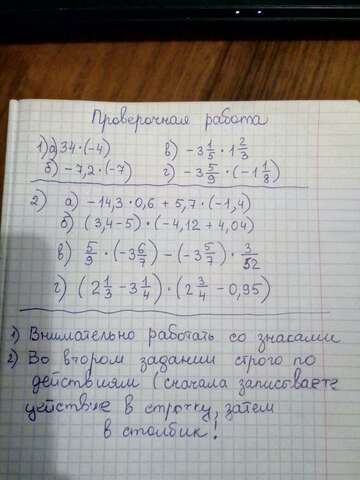 Проверочная работа
1) а) 34·(-4) в) -3 1/5 · 1 2/3
б) -7,2·(-7) г) -3 5/9 · (-1 1/8)
2) а) -14,3·0,6 + 5,7·(-1,4)
б) (3,4-5)·(-4,12 + 4,04)
в) 5/9 · (-3 6/7) - (-3 5/7) · 3/52
г) (2 1/3 - 3 1/4)·(2 3/4 - 0,95)
1) Внимательно работать со знаками
2) Во втором задании строго по
действиям (сначала записываете
действие в строчку, затем
в столбик!